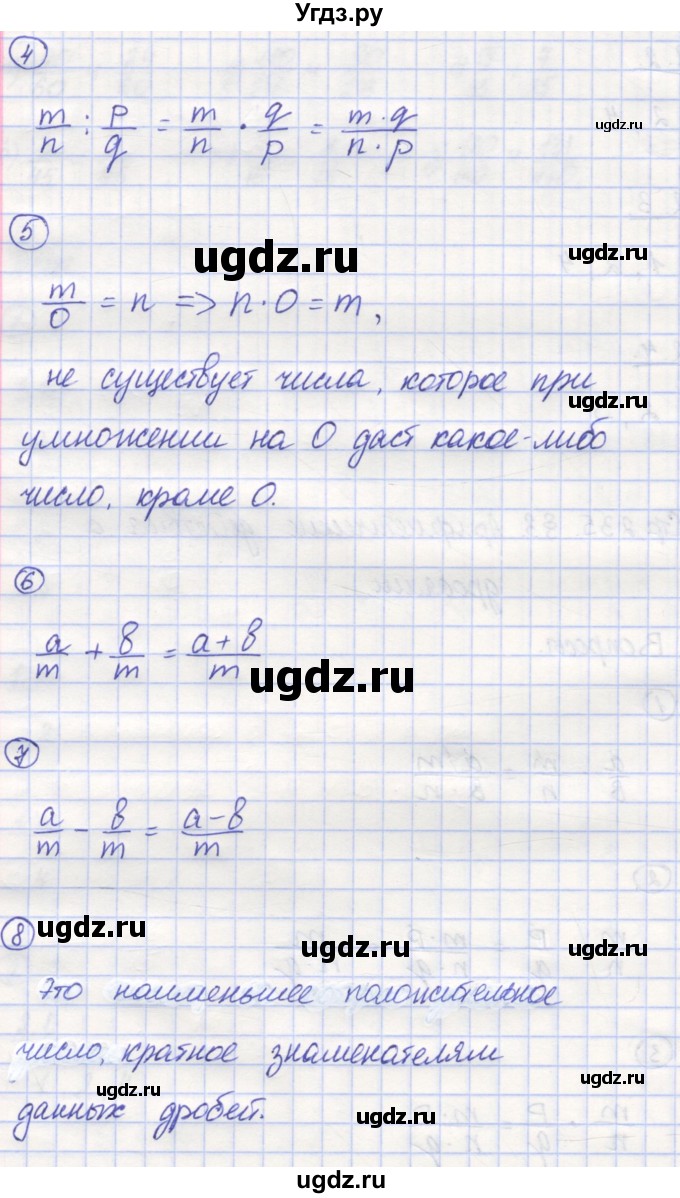 Угдз.ру
4
m/n : p/q = m/n · q/p = m·q/n·p
ugdz.ru
5
ugdz.ru
ugdz.ru
m/0 = n => n·0 = m,
не существует числа, которое при
ugdz.ru
умножении на 0 даст какое-либо
число, кроме 0.
6
a/m + в/m = a+в/m
ugdz.ru
7
a/m - в/m = a-в/m
8
ugdz.ru
ugdz.ru
ugdz.ru
Это наименьшее положительное
число, кратное знаменателям
ugdz.ru
ugdz.ru
данных дробей.
ugdz.ru
ugdz.ru